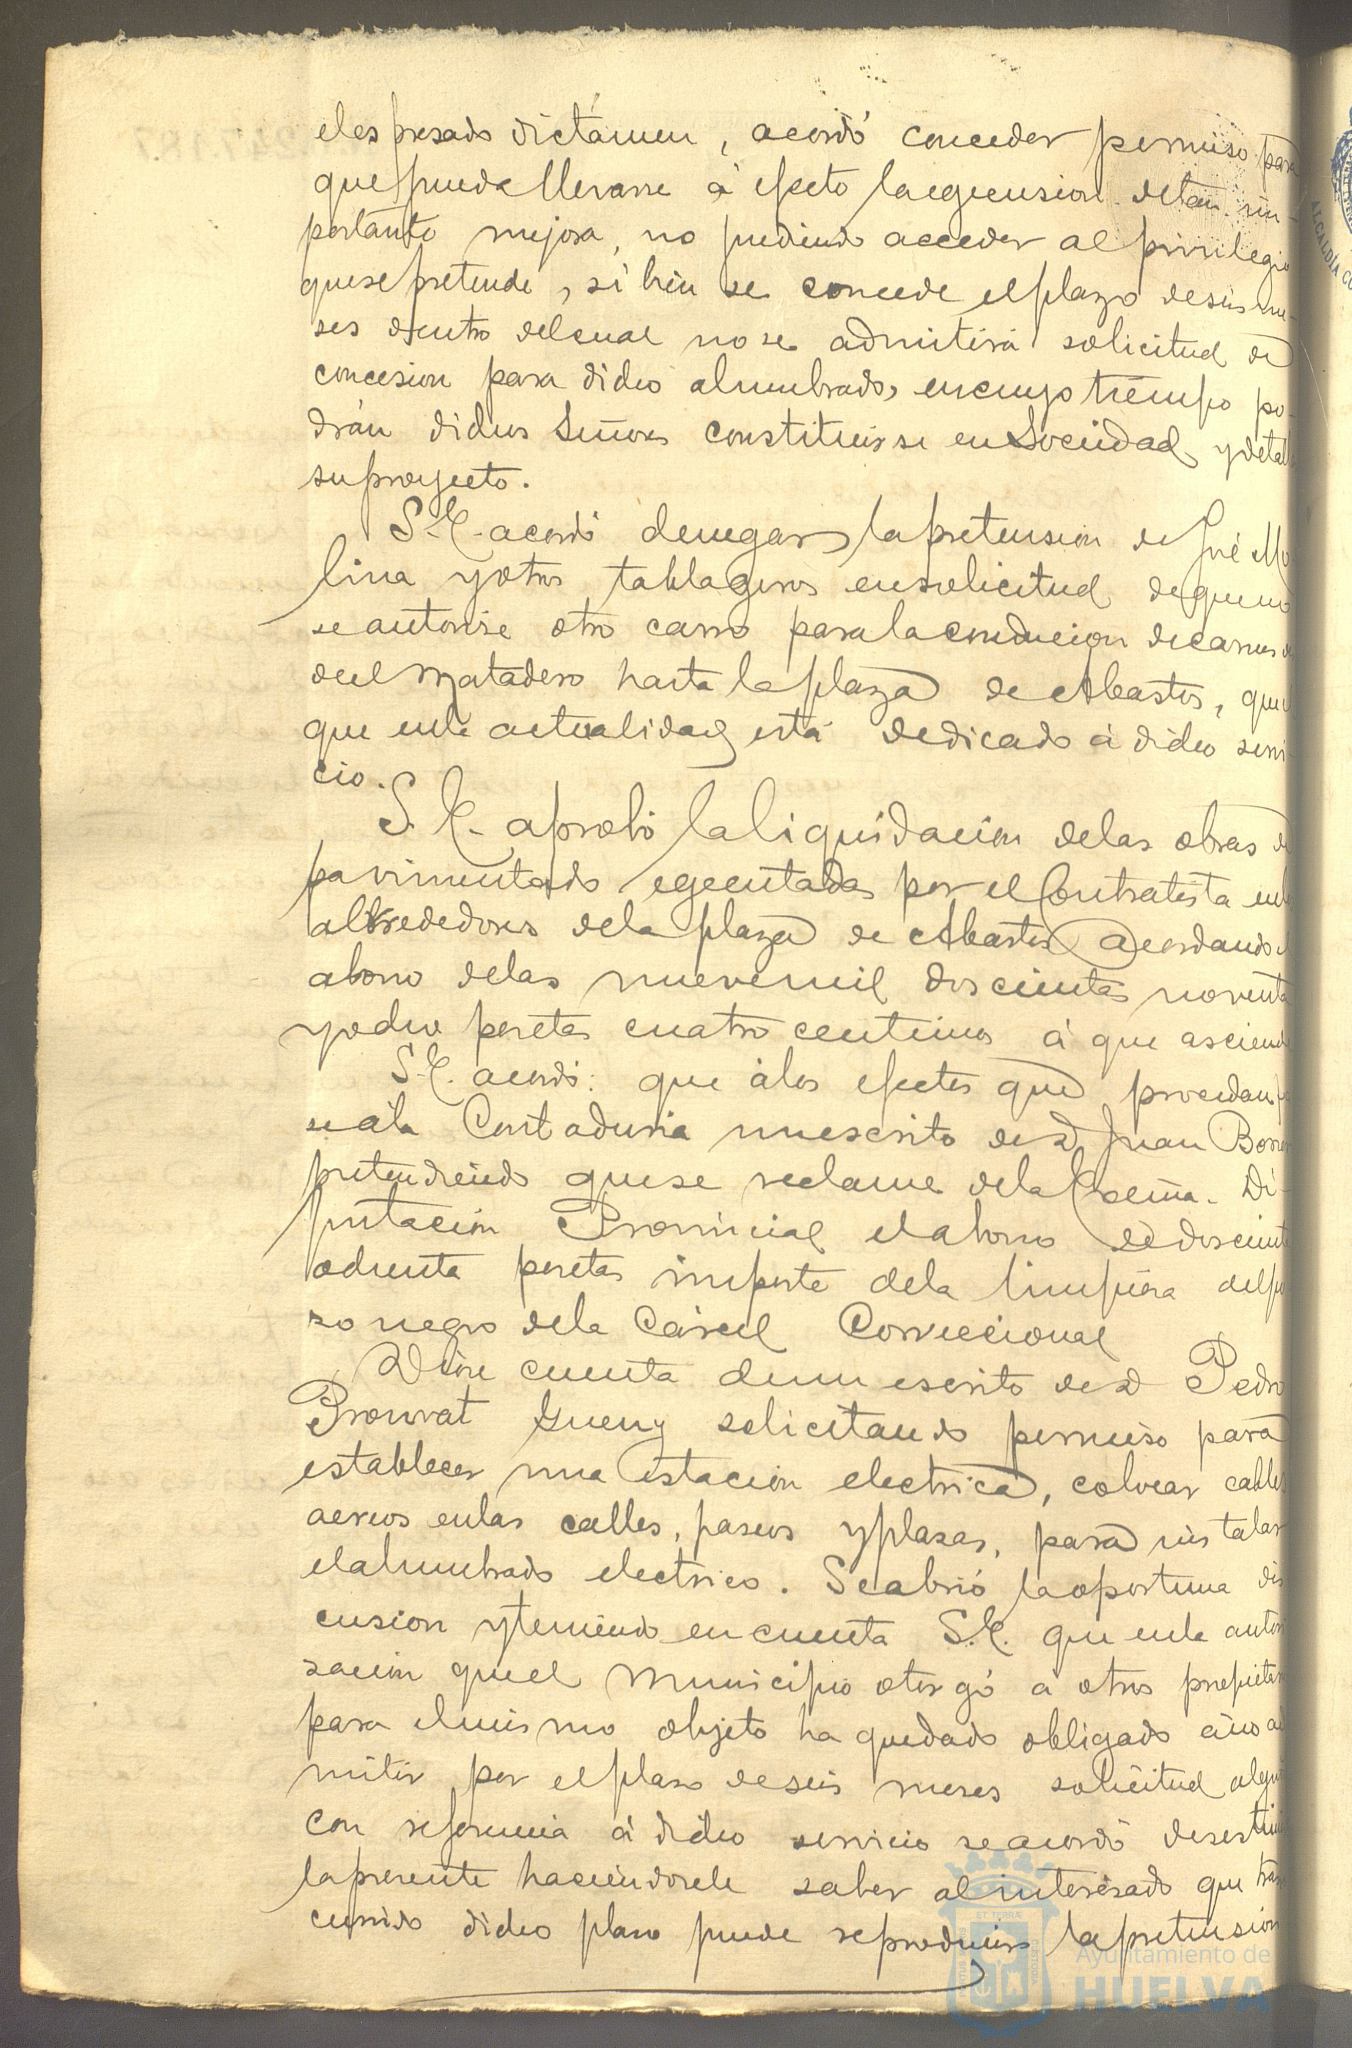 el espresado dictámen, acordó conceder permiso para
que pueda llevarse á efecto la egecusion de tan im-
portante mejora, no pudiendo acceder al privilegio
que se pretende, si bien se concede el plazo de seis me-
ses dentro del cual no se admitirá solicitud de
concesion para dicho alumbrado, en cuyo tiempo po-
drán dichos Señores constituirse en Sociedad y detallar
su proyecto.
S. E. acordó denegar la pretension de José Mo
lina y otros tablageros en solicitud de que no
se autorise otro carro para la conducion de carnes des
de el Matadero hasta la plaza de Abastos, que el
que en la actualidad está dedicado á dicho servi-
cio.
S. E. aprobó la liquidacion de las obras de
pavimentado egecutadas por el Contratista en los
alrededores de la plaza de Abastos acordando el
abono de las nueve mil doscientas noventa
y ocho pesetas cuatro centimos á que asciende
S. E. acordó: que á los efectos que procedan pa
se á la Contaduria un escrito de D. Juan Borrero
pretendiendo que se reclame de la Excma. Di-
putacion Provincial el abono de doscientas
ochenta pesetas importe de la limpieza del po
zo negro de la Cárcel Correccional
Diose cuenta de un escrito de D Pedro
Gueny solicitando permiso para
establecer una estacion electrica, colocar cables
aereos en las calles, paseos y plazas, para instalar
el alumbrado electrico. Se abrió la oportuna dis
cusion y teniendo en cuenta S. E. que en la autori
sacion que el Municipio otorgó á otros propietarios
para el mismo objeto ha quedado obligado á no ad
mitir por el plazo de seis meses solicitud alguna
con referencia á dicho servicio se acordó desestimar
la presente haciendosele saber al interesado que tras
currido dicho plazo puede reproducir la pretension
ALCALDÍA CO
Ayuntamiento de
HUELVA